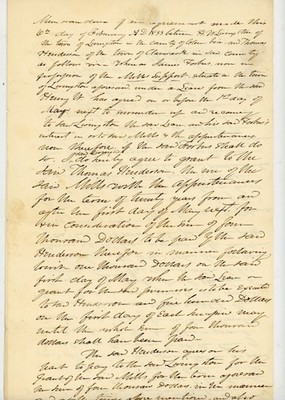 Memorandum of an agreement made this
6th day of February AD 1833 between H W Livingston
of the town of Livingston in the county of Columbia and Thomas
Henderson of the town of Clermont in the same County
as follows viz Whereas James Foster now in
possession of the Mills situate in the town
of Livingston aforesaid under a Lease from the said
Henry W has agreed on or before the 1st day of
May next to surrender up and
to the said Livingston the said Lease and his the said Foster's
interest in and to the Mills & the appurtenances
now therefore if the said Foster shall do
so I do hereby agree to grant to the
said Thomas Henderson the use of the
said Mills with the appurtenances
for the term of twenty years from and
after the first day of May next, for
in consideration of the sum of four
thousand Dollars to be paid by the said
Henderson therefor in manner following
to wit one thousand Dollars on the said
first day of May when the said Lease or
grant for the said premises is to be executed
to said Henderson and five hundred Dollars
on the first day of Each May
until the whole sum of four thousand
dollars shall have been paid.
The said Henderson agrees on his
part to pay to the said Livingston for the
grant of the said Mills for the term aforesaid
the sum of four thousand Dollars in the manner
and also